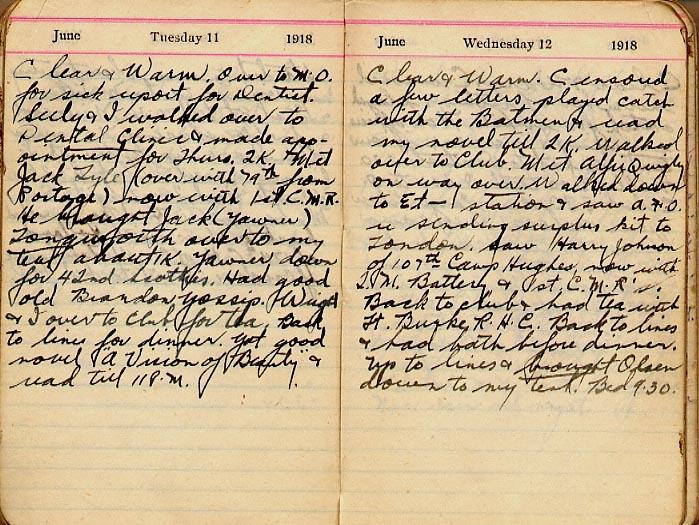 June Tuesday 11 1918
Clear & Warm. Over to M.O.
for sick report for Dentist.
Seely & I walked over to
Dental Clinic & made app-
ointment for Thurs. 2K. Met
Jack Lyle (over with 79th from
Portage) now with 1st C.M.R.
He brought Jack (Yawner)
Longworth over to my
tent about 1K. Yawner down
for 42nd brother. Had good
old Brandon gossip.
& I over to Club for tea, Back
to lines for dinner. Got good
novel "A Vision of Beauty" &
read till 11 P.M.
June Wednesday 12 1918
Clear & Warm. Censored
a few letters, played catch
with the Batmen & read
my novel till 2K. Walked
over to Club. Met Alf Quigly
on way over. Walked down
to Et— station & saw A.F.O.
re sending surplus kit to
London. Saw Harry Johnson
of 107th Camp Hughes, now with
Battery & 1st, C.M.R's.
Back to club & had tea with
Lt. Burke R.H.C. Back to lines
& had bath before dinner.
Up to lines & brought Olsen
down to my tent. Bed 9.30.